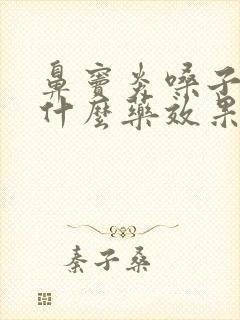 鼻窦炎嗓子
什麼藥效果
秦子桑